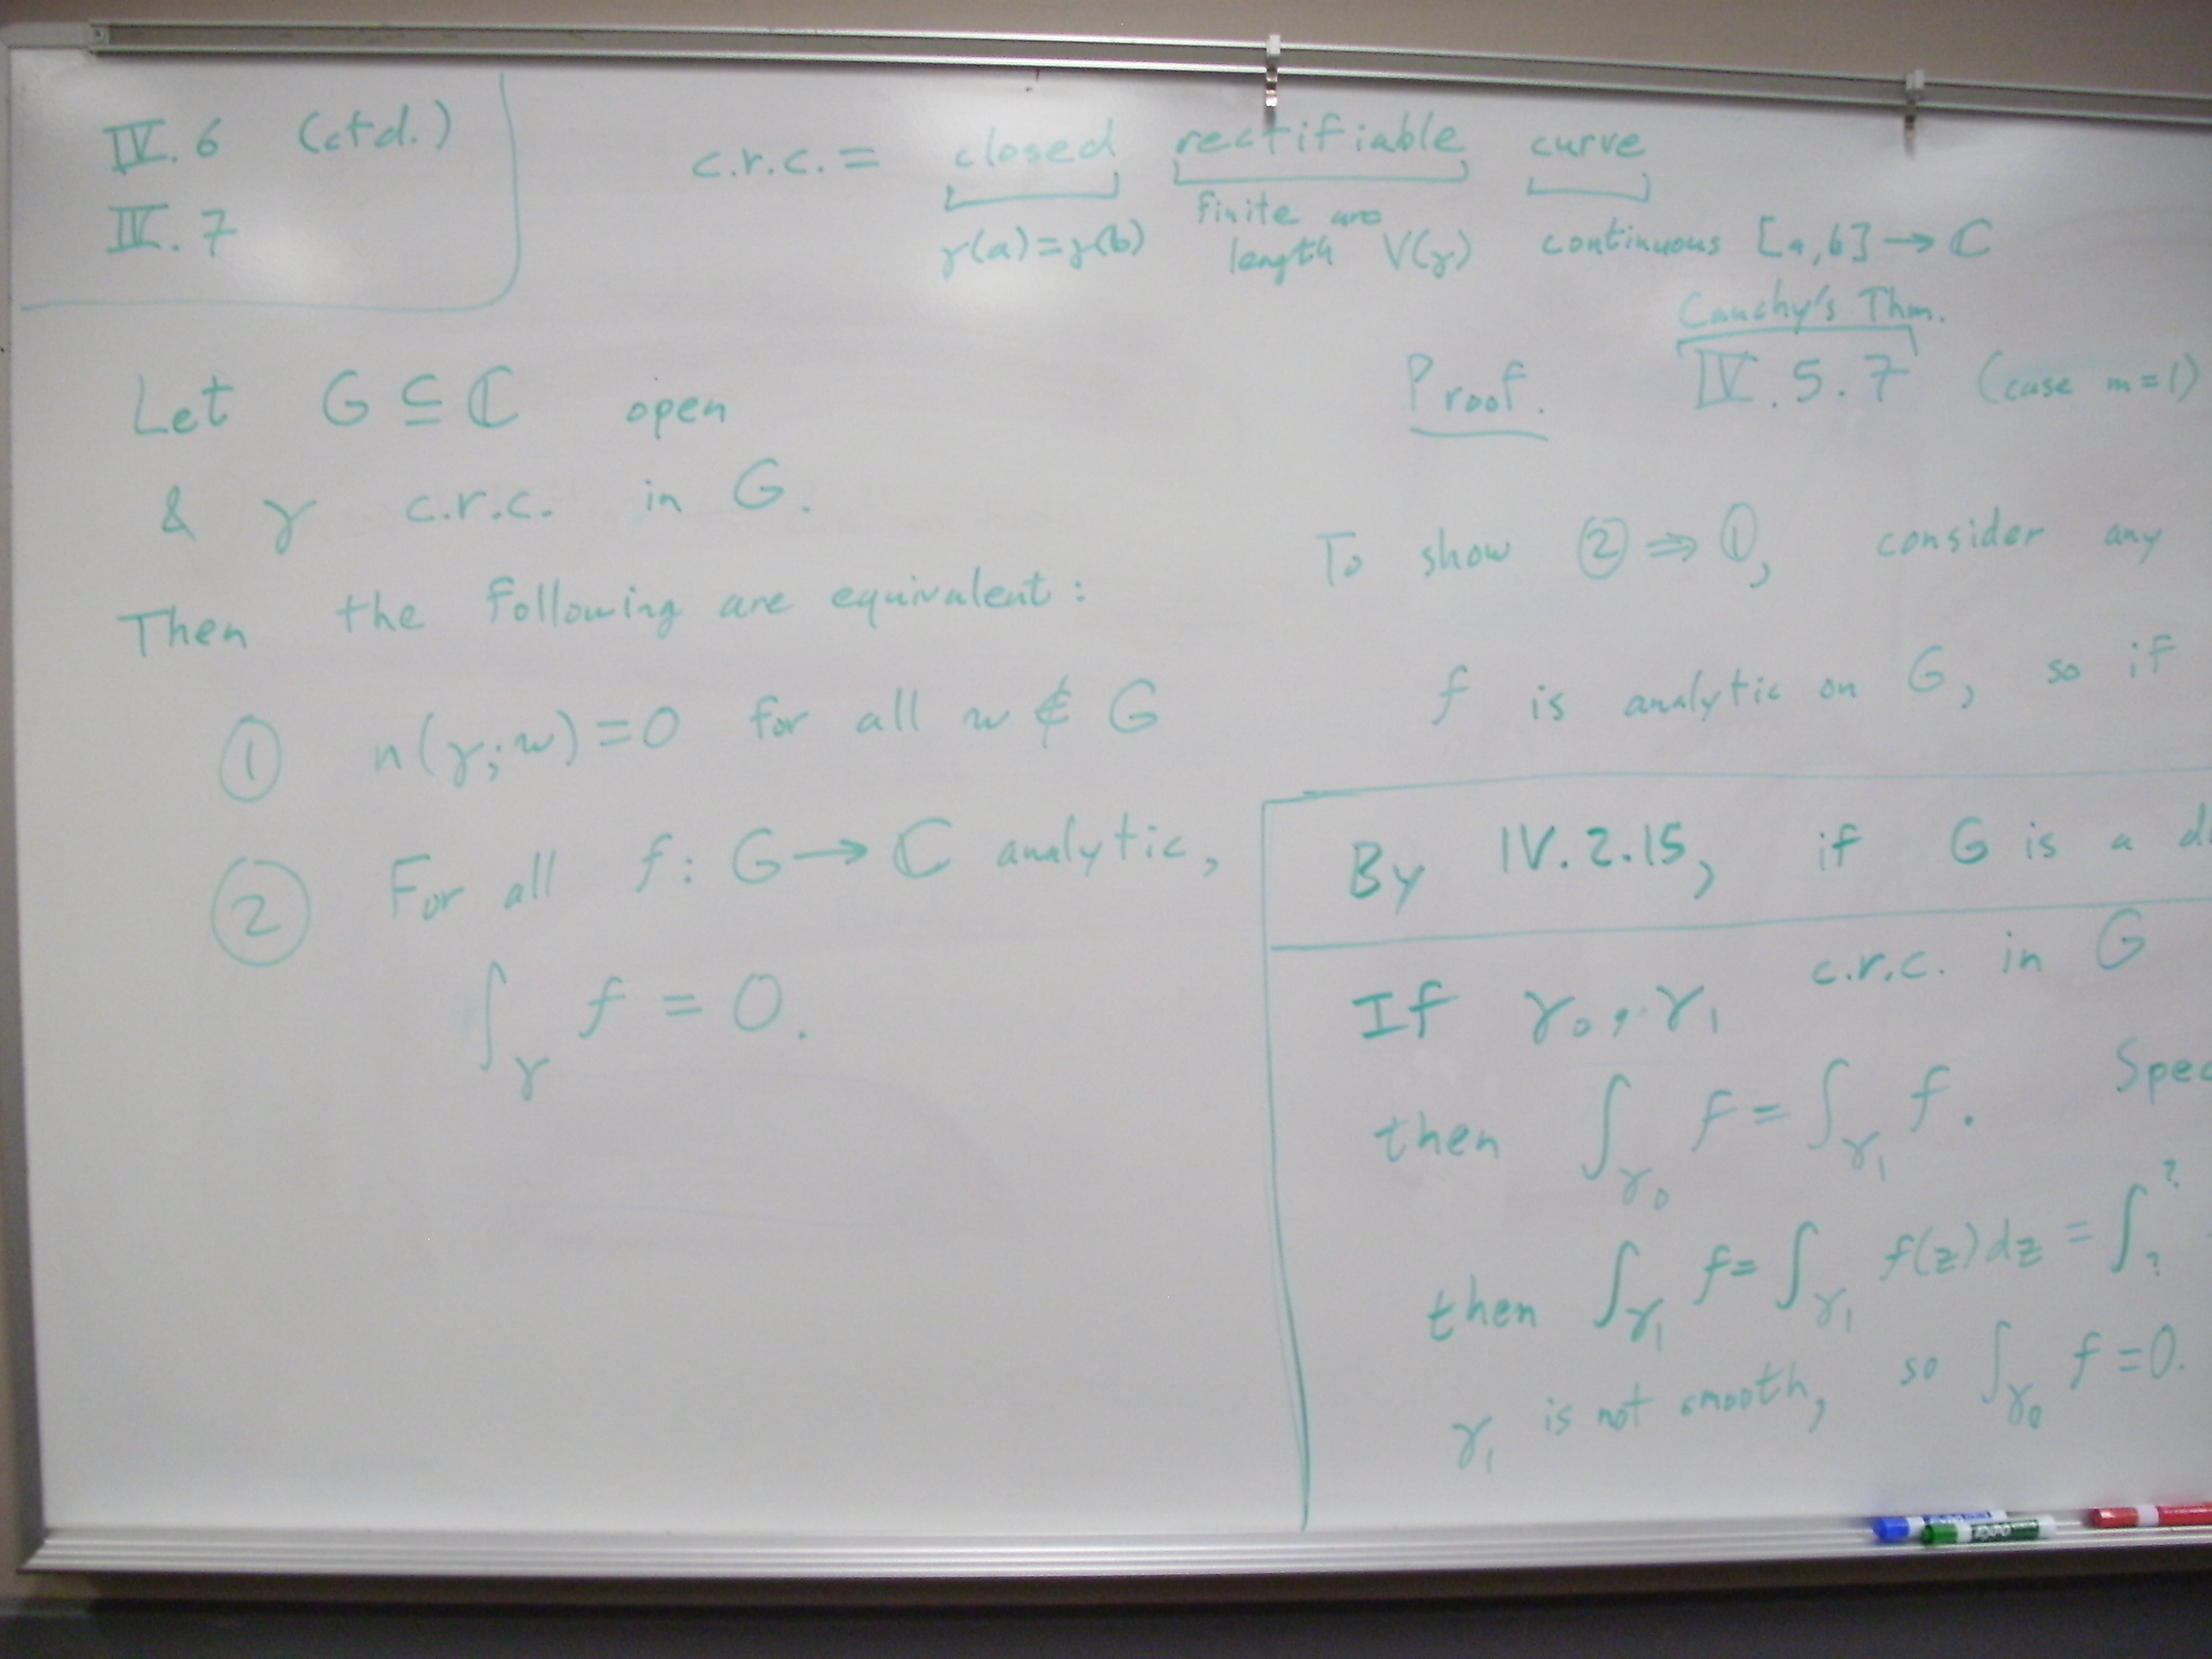 IV.6 (ctd.)
IV.7
c.r.c. = closed rectifiable curve
γ(a)=γ(b) finite arc length V(γ) continuous [a,b] → ℂ
Let G ⊆ ℂ open
& γ c.r.c. in G.
Then the following are equivalent:
① n(γ;w)=0 for all w ∉ G
② For all f: G → ℂ analytic,
∫_γ f = 0.
Cauchy's Thm.
Proof. IV.5.7 (case m=1)
To show ② ⇒ ①, consider any
f is analytic on G, so if
By IV.2.15, if G is a
If γ₀, γ₁ c.r.c. in G
then ∫_γ₀ f = ∫_γ₁ f. Spec
then ∫_γ₁ f = ∫_γ₁ f(z)dz = ∫_?^?
γ₁ is not smooth, so ∫_γ₀ f = 0.